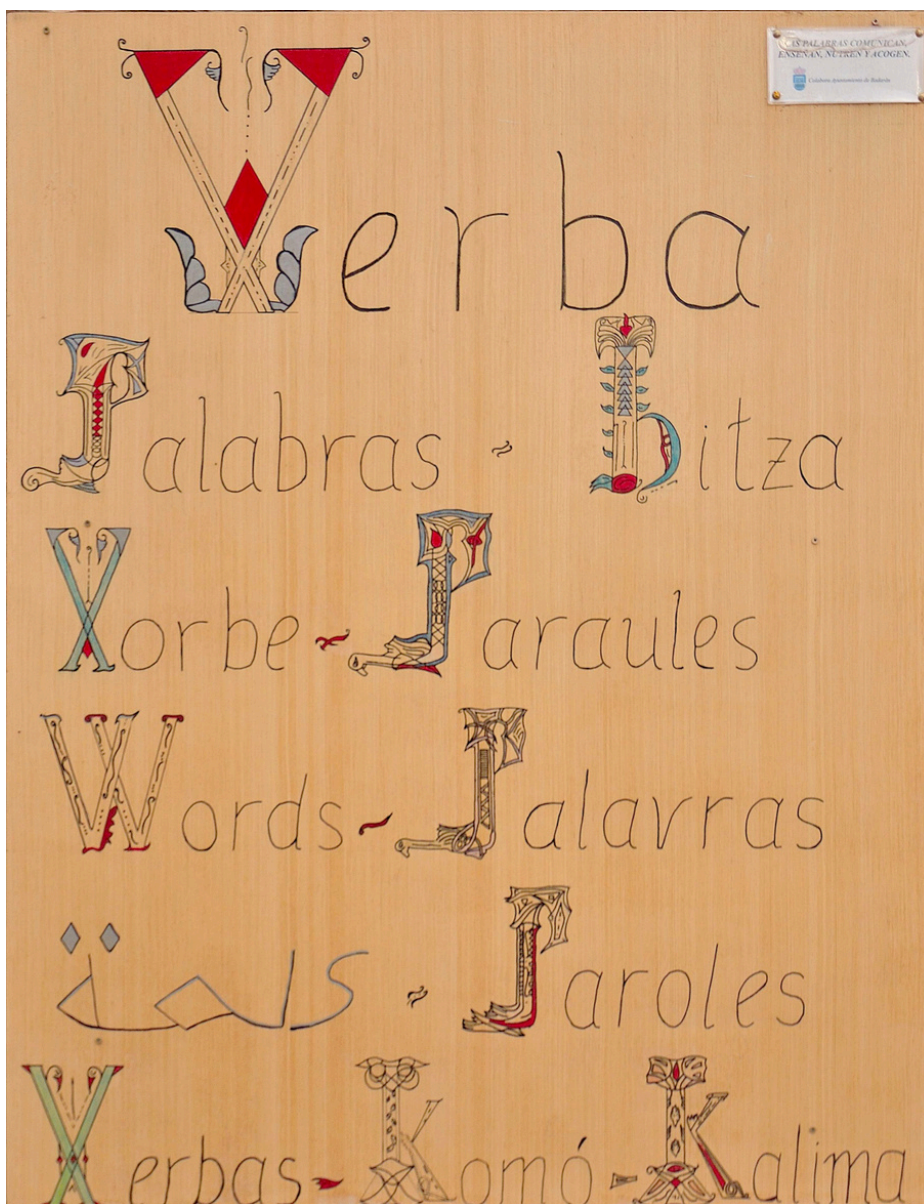 LAS PALABRAS COMUNICAN,
ENSEÑAN, NUTREN Y ACOGEN.
Colabora Ayuntamiento de
Verba
Palabras ~ bitza
Xorbe ~ Paraules
Words ~ Palavras
كلمة ~ Paroles
Xerbas ~ Komó ~ Kalima